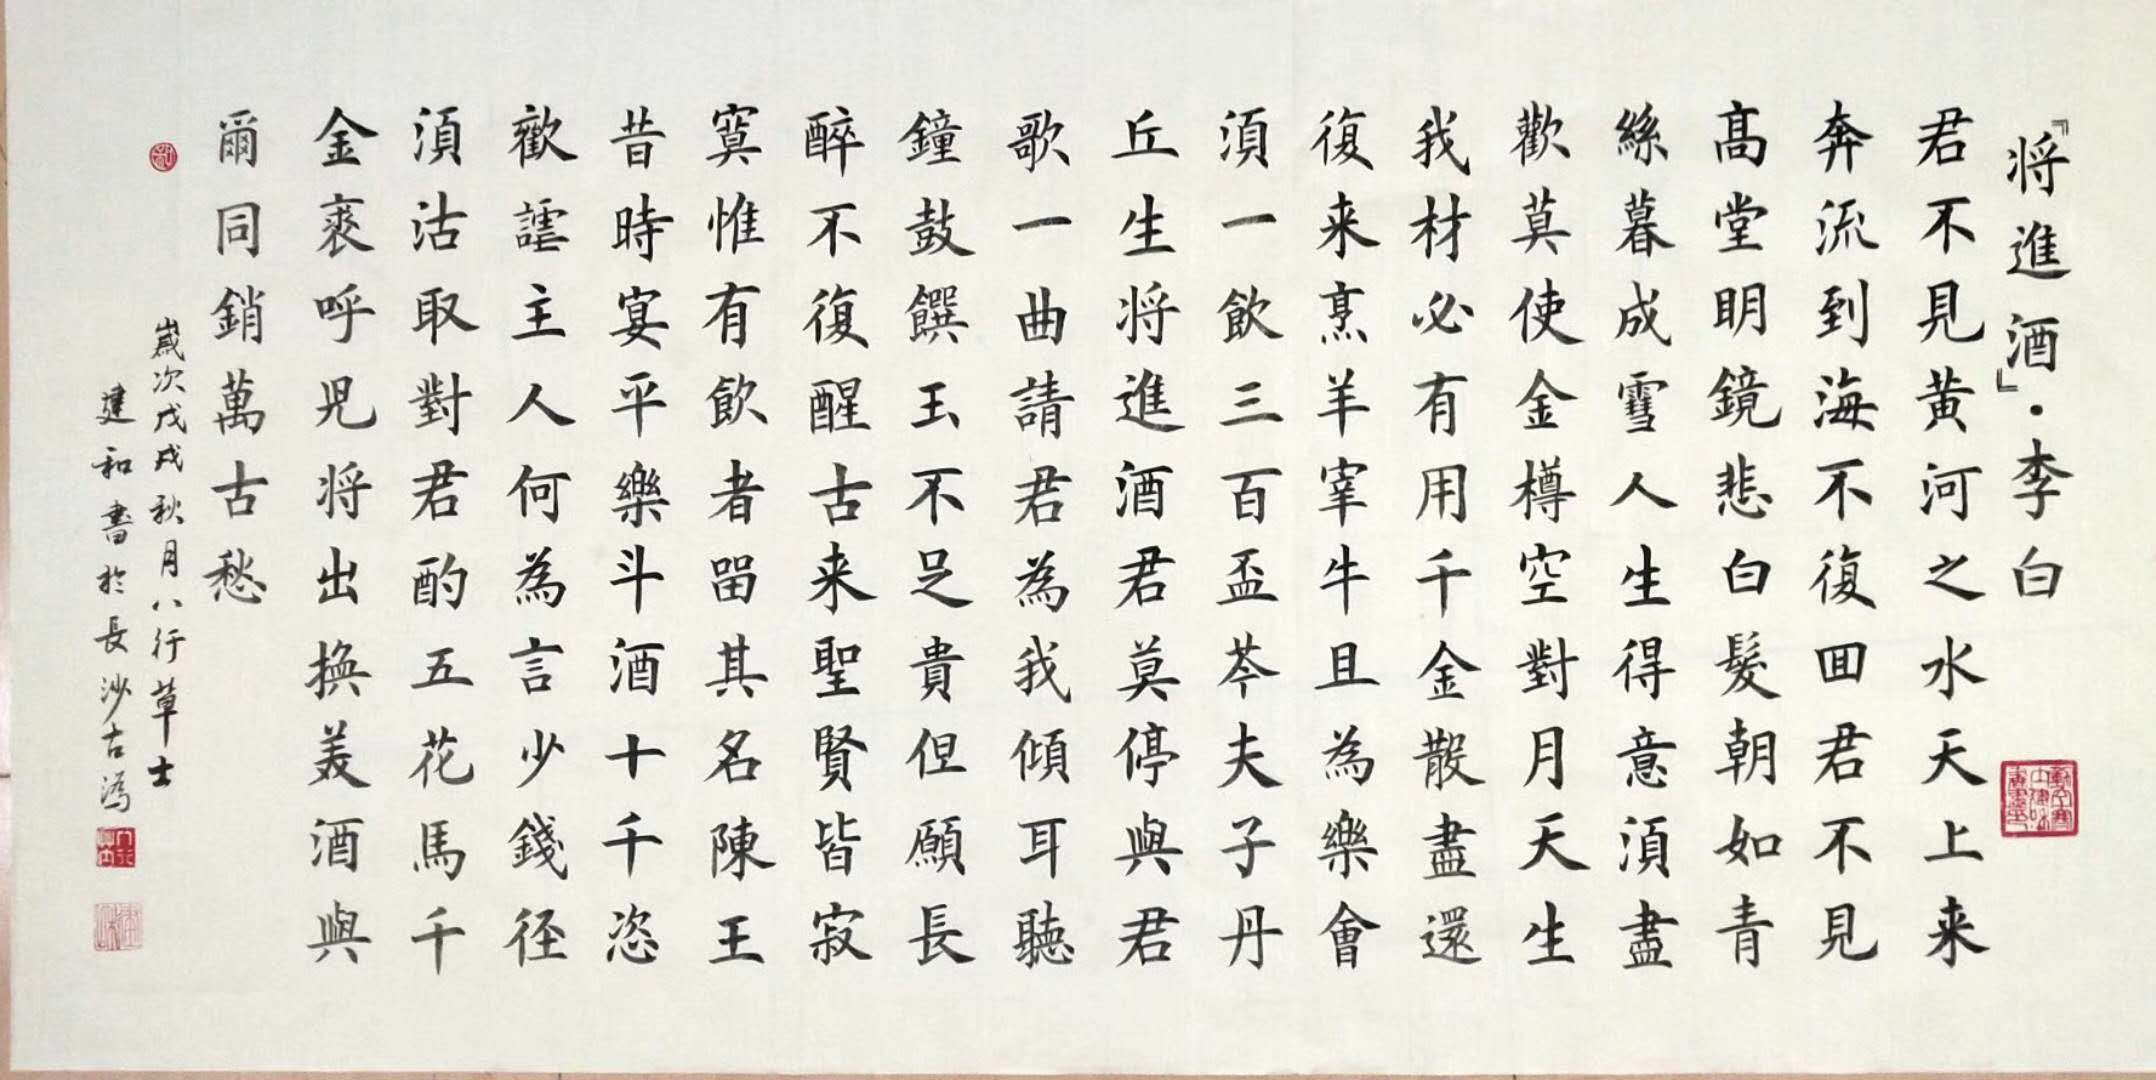 『将進酒』·李白
君不見黄河之水天上来
奔流到海不復囬君不見
髙堂明鏡悲白髮朝如青
絲暮成雪人生得意須盡
歡莫使金樽空對月天生
我材必有用千金散盡還
復来烹羊宰牛且為樂會
須一飲三百盃芩夫子丹
丘生将進酒君莫停與君
歌一曲請君為我傾耳聽
鐘鼓饌玉不足貴但願長
醉不復醒古来聖賢皆寂
寞惟有飲者留其名陳王
昔時宴平樂斗酒十千恣
歡謔主人何為言少錢径
須沽取對君酌五花馬千
金裘呼兒将出換美酒與
爾同銷萬古愁
歲次戊戌秋月八行草士
建和書於長沙古溈